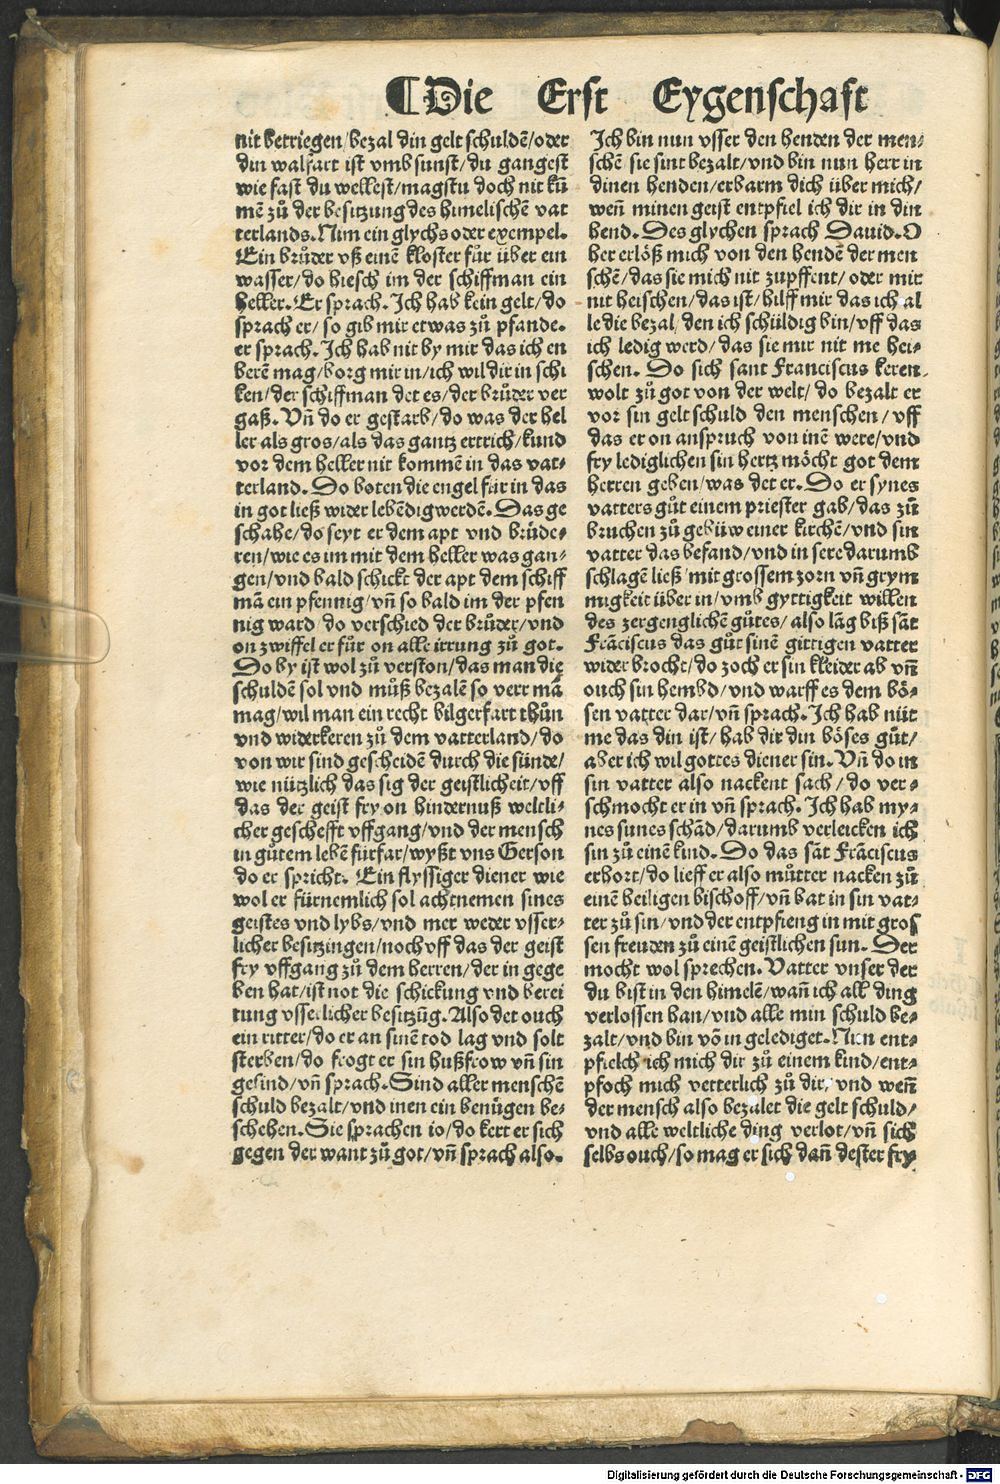 ¶Die Erst Eygenschaft
nit betriegen/bezal din gelt schuldē/oder
din walfart ist vmb sunst/du gangest
wie fast du wellest/magstu doch nit kū
mē zů der besitzung des himelischē vat
terlands. Nim ein glychs oder exempel.
Ein brůder vß einē kloster fůr über ein
wasser/do hiesch im der schiffman ein
heller. Er sprach. Ich hab kein gelt/do
sprach er/so gib mir etwas zů pfande.
er sprach. Ich hab nit by mir das ich en
berē mag/borg mir in/ich wil dir in schi
ken/der schiffman det es/der brůder ver
gaß. Vñ do er gestarb/do was der hel
ler als gros/als das gantz ertrich/kund
vor dem heller nit kommē in das vat⸗
terland. Do boten die engel für in das
in got ließ wider lebēdig werdē. Das ge
schahe/do seyt er dem apt vnd brüde⸗
ren/wie es im mit dem heller was gan⸗
gen/vnd bald schickt der apt dem schiff
mā ein pfennig/vñ so bald im der pfen
nig ward/do verschied der brůder/vnd
on zwiffel er fůr on alle irrung zů got.
Do by ist wol zů verston/das man die
schuldē sol vnd můß bezalē so verr mā
mag/wil man ein recht bilgerfart thůn
vnd widerkeren zů dem vatterland/do
von wir sind gescheidē durch die sünde/
wie nützlich das sig der geistlicheit/vff
das der geist fry on hindernuß weltli⸗
cher geschefft vffgang/vnd der mensch
in gůtem lebē fürfar/wyßt vns Gerson
do er spricht. Ein flyssiger diener wie
wol er fürnemlich sol achtnemen sines
geistes vnd lybs/vnd mer weder vsser⸗
licher besitzingen/noch vff das der geist
fry vffgang zů dem herren/der in gege
ben hat/ist not die schickung vnd berei
tung vsserlicher besitzūg. Also det ouch
ein ritter/do er an sinē tod lag vnd solt
sterben/do frogt er sin hußfrow vñ sin
gesind/vñ sprach. Sind aller menschē
schuld bezalt/vnd inen ein benügen be⸗
schehen. Sie sprachen io/do kert er sich
gegen der want zů got/vñ sprach also.
Ich bin nun vsser den henden der men⸗
schē sie sint bezalt/vnd bin nun herr in
dinen henden/erbarm dich über mich/
weñ minen geist entpfiel ich dir in din
hend. Des glychen sprach Dauid. O
her erlöß mich von den hendē der men
schē/das sie mich nit zupffent/oder mir
nit heischen/das ist/hilff mir das ich al
le die bezal/den ich schüldig bin/vff das
ich ledig werd/das sie mir nit me hei⸗
schen. Do sich sant Franciscus keren
wolt zů got von der welt/do bezalt er
vor sin gelt schuld den menschen/vff
das er on anspruch von inē were/vnd
fry lediglichen sin hertz möcht got dem
herren geben/was det er. Do er synes
vatters gůt einem priester gab/das zů
bruchen zů gebüw einer kirchē/vnd sin
vatter das befand/vnd in sere darumb
schlagē ließ mit grossem zorn vñ grym
migkeit über in/vmb gyttigkeit willen
des zergenglichē gůtes/also lāg biß sāt
Frāciscus das gůt sinē gittigen vatter
wider brocht/do zoch er sin kleider ab vñ
ouch sin hembd/vnd warff es dem bö⸗
sen vatter dar/vñ sprach. Ich hab nüt
me das din ist/hab dir din böses gůt/
aber ich wil gottes diener sin. Vñ do in
sin vatter also nackent sach/do ver⸗
schmocht er in vñ sprach. Ich hab my⸗
nes sunes schād/darumb verleicken ich
sin zů einē kind. Do das sāt Frāciscus
erhort/do lieff er also můtter nacken zů
einē heiligen bischoff/vñ bat in sin vat⸗
ter zů sin/vnd der entpfieng in mit gros
sen freuden zů einē geistlichen sun. Der
mocht wol sprechen. Vatter vnser der
du bist in den himelē/wañ ich all ding
verlossen han/vnd alle min schuld be⸗
zalt/vnd bin vō in gelediget. Nun ent⸗
pfielch ich mich dir zů einem kind/ent⸗
pfoch mich vetterlich zů dir/vnd weñ
der mensch also bezalet die gelt schuld/
vnd alle weltliche ding verlot/vñ sich
selbs ouch/so mag er sich dañ dester fry
Digitalisierung gefördert durch die Deutsche Forschungsgemeinschaft - DFG